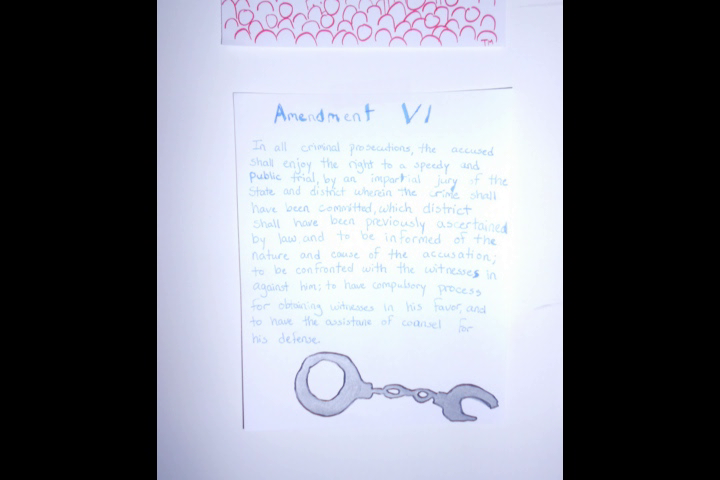 TM
Amendment VI
In all criminal prosecutions, the accused
shall enjoy the right to a speedy and
Public trial, by an impartial jury of the
State and district wherein the crime shall
have been committed, which district
shall have been previously ascertained
by law, and to be informed of the
nature and cause of the accusation;
to be confronted with the witnesses in
against him; to have compullory process
for obtaining witnesses in his favor, and
to have the assistane of counsel for
his defense.